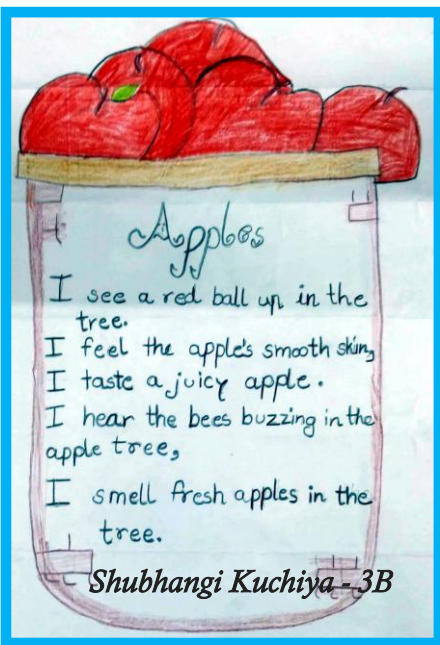 Apples
I see a red ball up in the
tree.
I feel the apple's smooth skin,
I taste a juicy apple.
I hear the bees buzzing in the
apple tree,
I smell fresh apples in the
tree.
Shubhangi Kuchiya - 3B